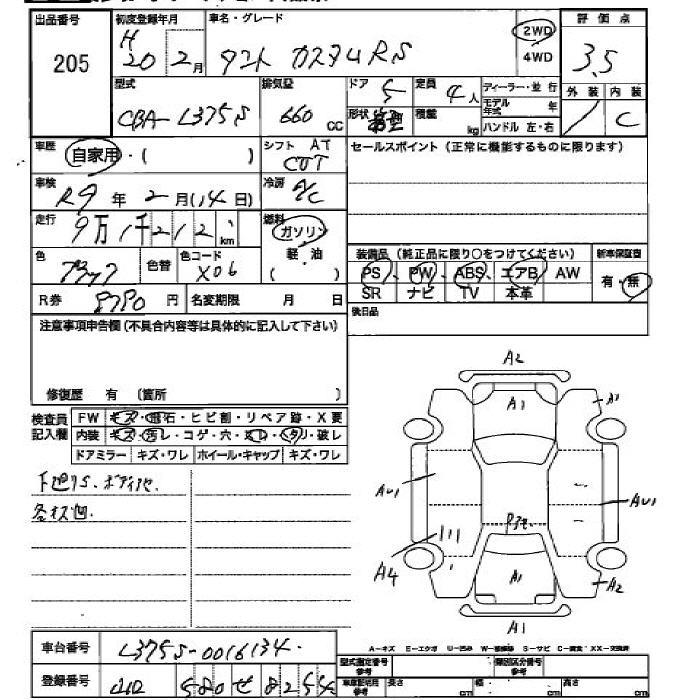 出品番号 初度登録年月 車名・グレード 2WD 4WD 評価点
205 H20 2月 タント カスタムRS 3.5
型式 排気量 ドア 5 定員 4人 ディーラー・並行 外装 内装
CBA- L375S 660 cc 形状 積載 kg モデル年式 年 C
ハンドル 左・右
車歴 自家用・( ) シフト AT セールスポイント(正常に機能するものに限ります)
車検 R9年 2月(14日) 冷房 A/C
走行 9万1千212km 燃料 ガソリン
軽・油
( )
色 色替 色コード X06 装備品(純正品に限り○をつけてください) 新車保証書
PS PW ABS エアB AW 有・無
SR ナビ TV 本革
R券 8780円 名変期限 月 日 後日品
注意事項申告欄(不具合内容等は具体的に記入して下さい)
修復歴 有 (箇所 )
検査員 FW キズ・飛石・ヒビ割・リペア跡・X要
記入欄 内装 キズ・汚レ・コゲ・穴・・破レ
ドアミラー キズ・ワレ ホイール・キャップ キズ・ワレ
下廻りS.
A2
A1
A1
AU1
AU1
A4
A2
A1
A1
車台番号 L375S-0016134.
A-キズ E-エクボ U-凹み S-サビ
型式指定番号 参考 類別区分番号 参考
登録番号 580 せ 8254
車庫証明用 参考 長さ cm 幅 cm 高さ cm